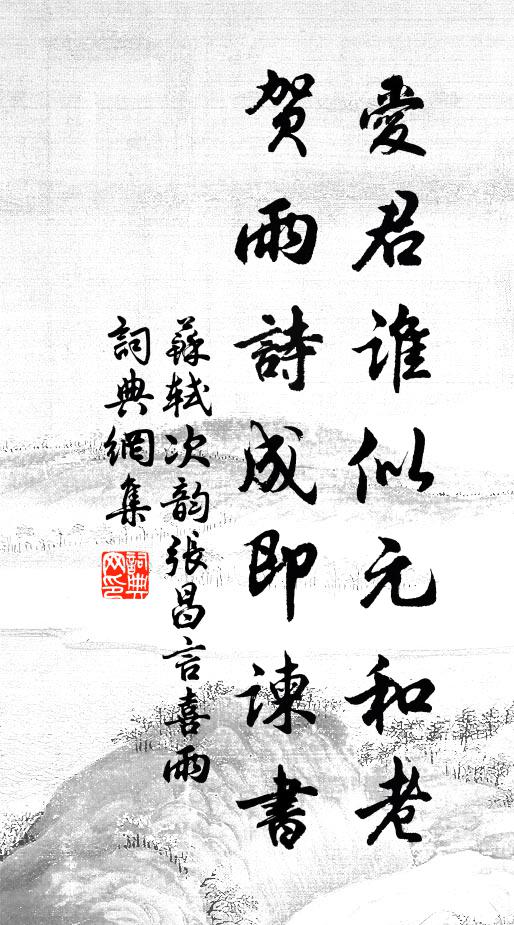 愛君谁似元和老
贺雨詩成即諫書
蘇軾次韵張昌言喜雨
詞典網集
詞典网印